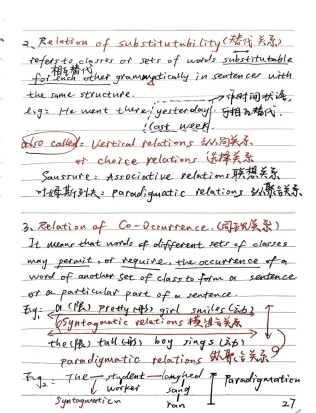 2、Relation of substitutability (替代关系)
refers to classes or sets of words substitutable
相互替代
for each other grammatically in sentences with
the same structure.
e.g: He went there yesterday 作时间状语,
last week. 可相互替代.
also called: Vertical relations 纵向关系
or choice relations 选择关系
Saussure: Associative relations 联想关系
叶姆斯列夫: paradigmatic relations 纵聚合关系
3、Relation of Co-Occurrence. (同现关系)
It means that words of different sets of classes
may permit, or require, the occurrence of a
word of another set of class to form a sentence
or a particular part of a sentence.
Eg1: a (限) pretty (修) girl smiles (动)
Syntagmatic relations 横组合关系
the (限) tall (修) boy sings (动)
paradigmatic relations 纵聚合关系
Eg2 - The student laughed Paradigmatic
worker sang
Syntagmatic ran
27